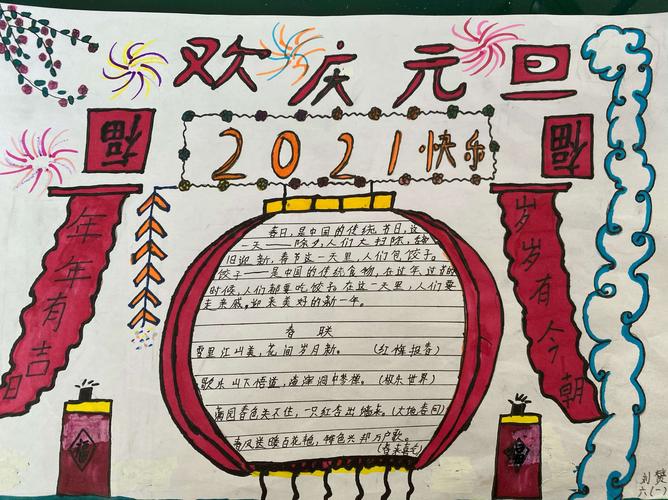 欢庆元旦
福
2021快乐
福
年年有吉日
岁岁有今朝
春日,是中国的传统节日,这
一天——除夕,人们大扫除,
旧迎新,春节这一天里,人们包饺子。
饺子——是中国的传统食物,在过年过节的
时候,人们都要吃饺子在这一天里,人们要
走来戚。迎来美好的新一年。
春联
雪里江山美,花间岁月新。(红梅报春)
歌乐山下悟道,洞中参禅。(极乐世界)
满园春色关不住,一只红杏出墙来。(大地春回)
春风送暖百花艳,共邦万户歌。
福
刘赞
六(一)